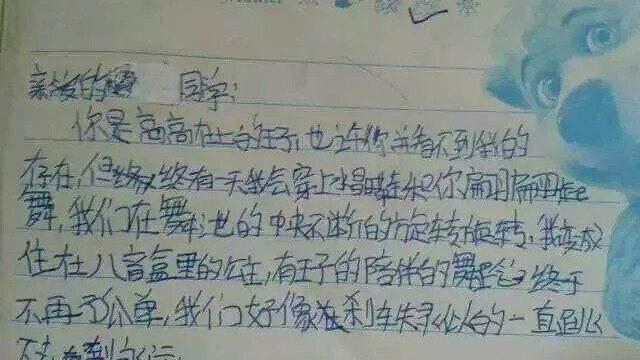 亲爱的 同学:
你是高高在上的王子,也许你并看不到我的
存在,但终终有一天我会穿上水晶鞋和你翩翩起
舞,我们在舞池的中央不断的旋转旋转,我变成
住在八音盒里的公主,有王子的陪伴的舞蹈终于
不再孤单,我们好像刹车失灵似的一直